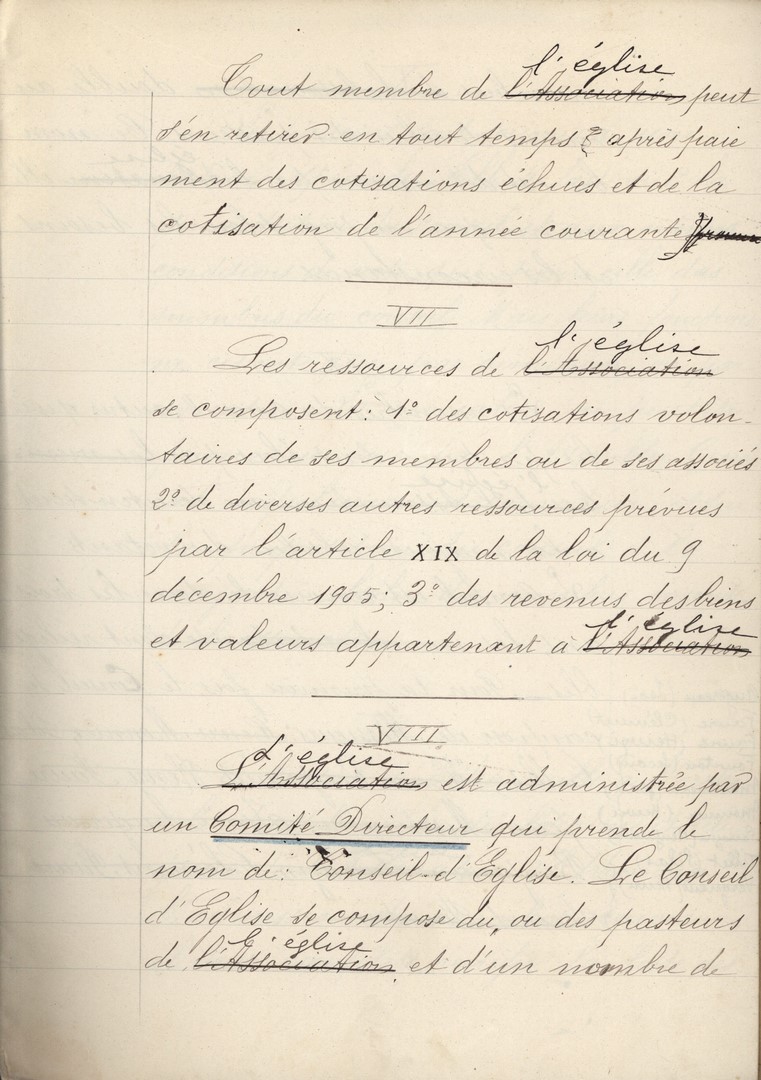 l'église
Tout membre de l'Association peut
s'en retirer en tout temps après paie
ment des cotisations échues et de la
cotisation de l'année courante
VII
l'église
Les ressources de l'Association
se composent : 1º des cotisations volon-
taires de ses membres ou de ses associés
2º de diverses autres ressources prévues
par l'article XIX de la loi du 9
décembre 1905; 3º des revenus des biens
l'église
et valeurs appartenant à l'Association
VIII
L'église
L'Association est administrée par
un Comité Directeur qui prend le
nom de : Conseil d'Église. Le Conseil
d'Eglise se compose du, ou des pasteurs
l'église
de l'Association et d'un nombre de